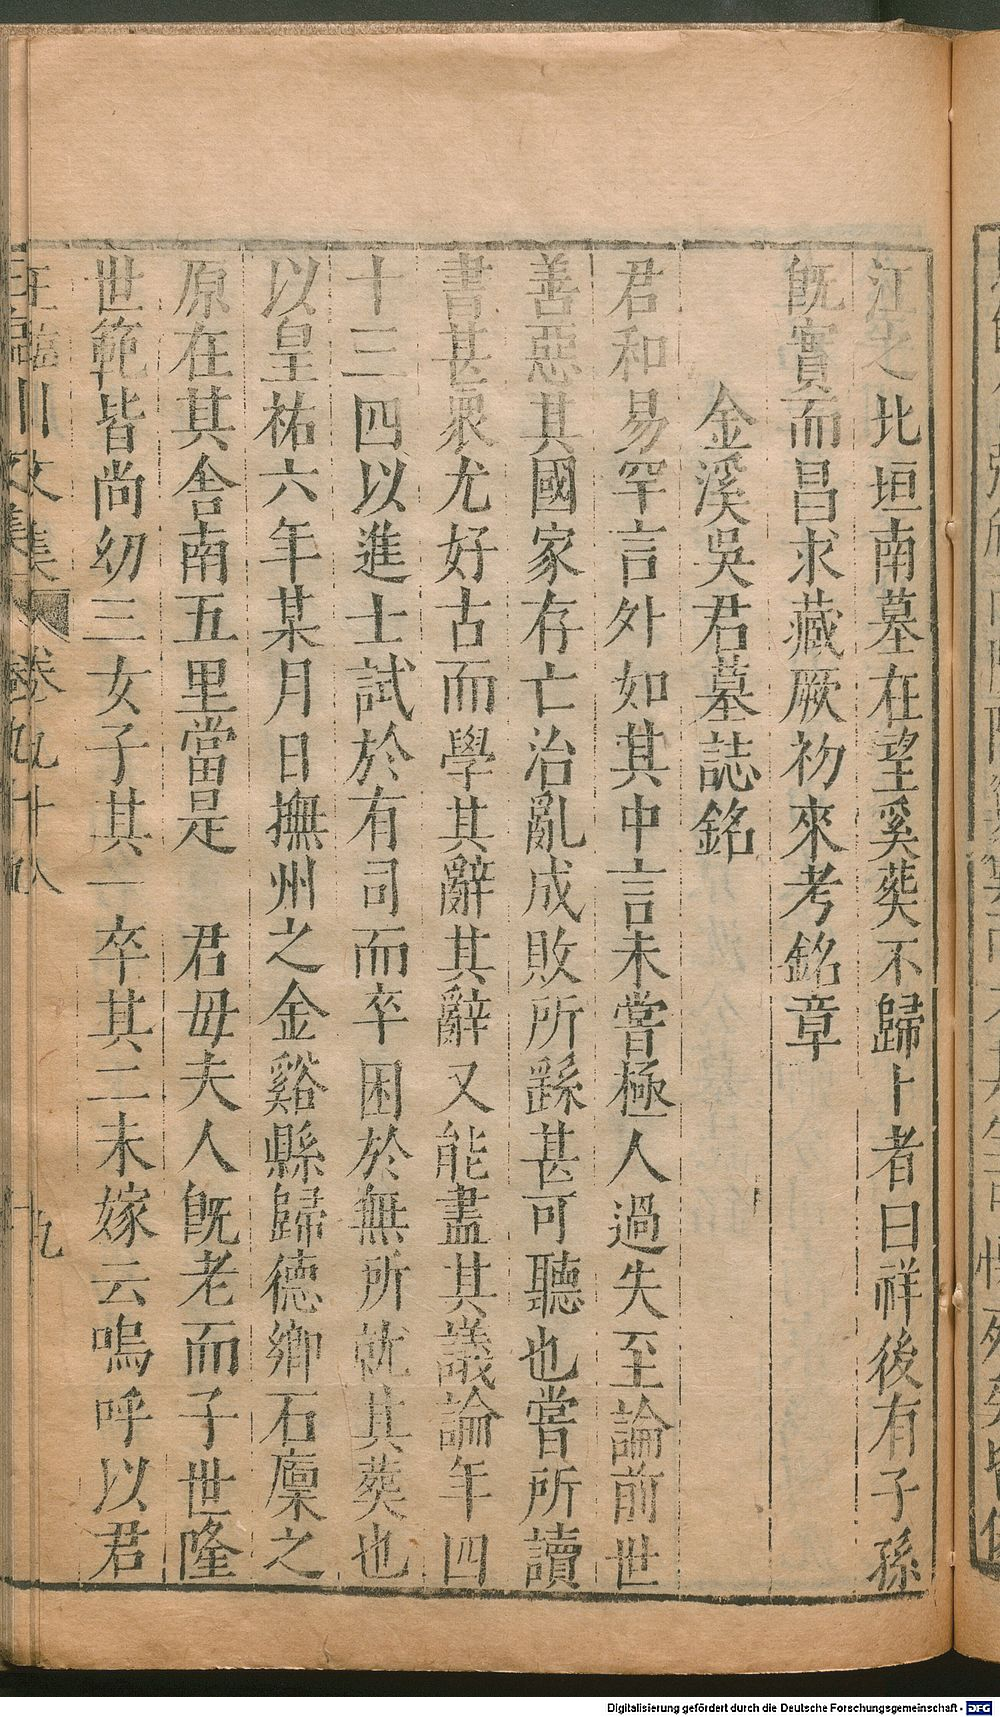 江之北垣南墓在望奚葬不歸卜者曰祥後有子孫
旣實而昌求藏厥初來考銘章
金溪吳君墓誌銘
君和易罕言外如其中言未嘗極人過失至論前世
善惡其國家存亡治亂成敗所繇甚可聽也嘗所讀
書甚衆尤好古而學其辭其辭又能盡其議論年四
十三四以進士試於有司而卒困於無所就其葬也
以皇祐六年某月日撫州之金谿縣歸德鄉石廩之
原在其舍南五里當是 君毋夫人旣老而子世隆
世範皆尚幼三女子其一卒其二未嫁云嗚呼以君
王臨川文集 卷九十八 九
Digitalisierung gefördert durch die Deutsche Forschungsgemeinschaft - DFG